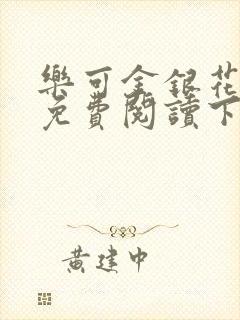 樂可金銀花
免費閱讀下
黃建中